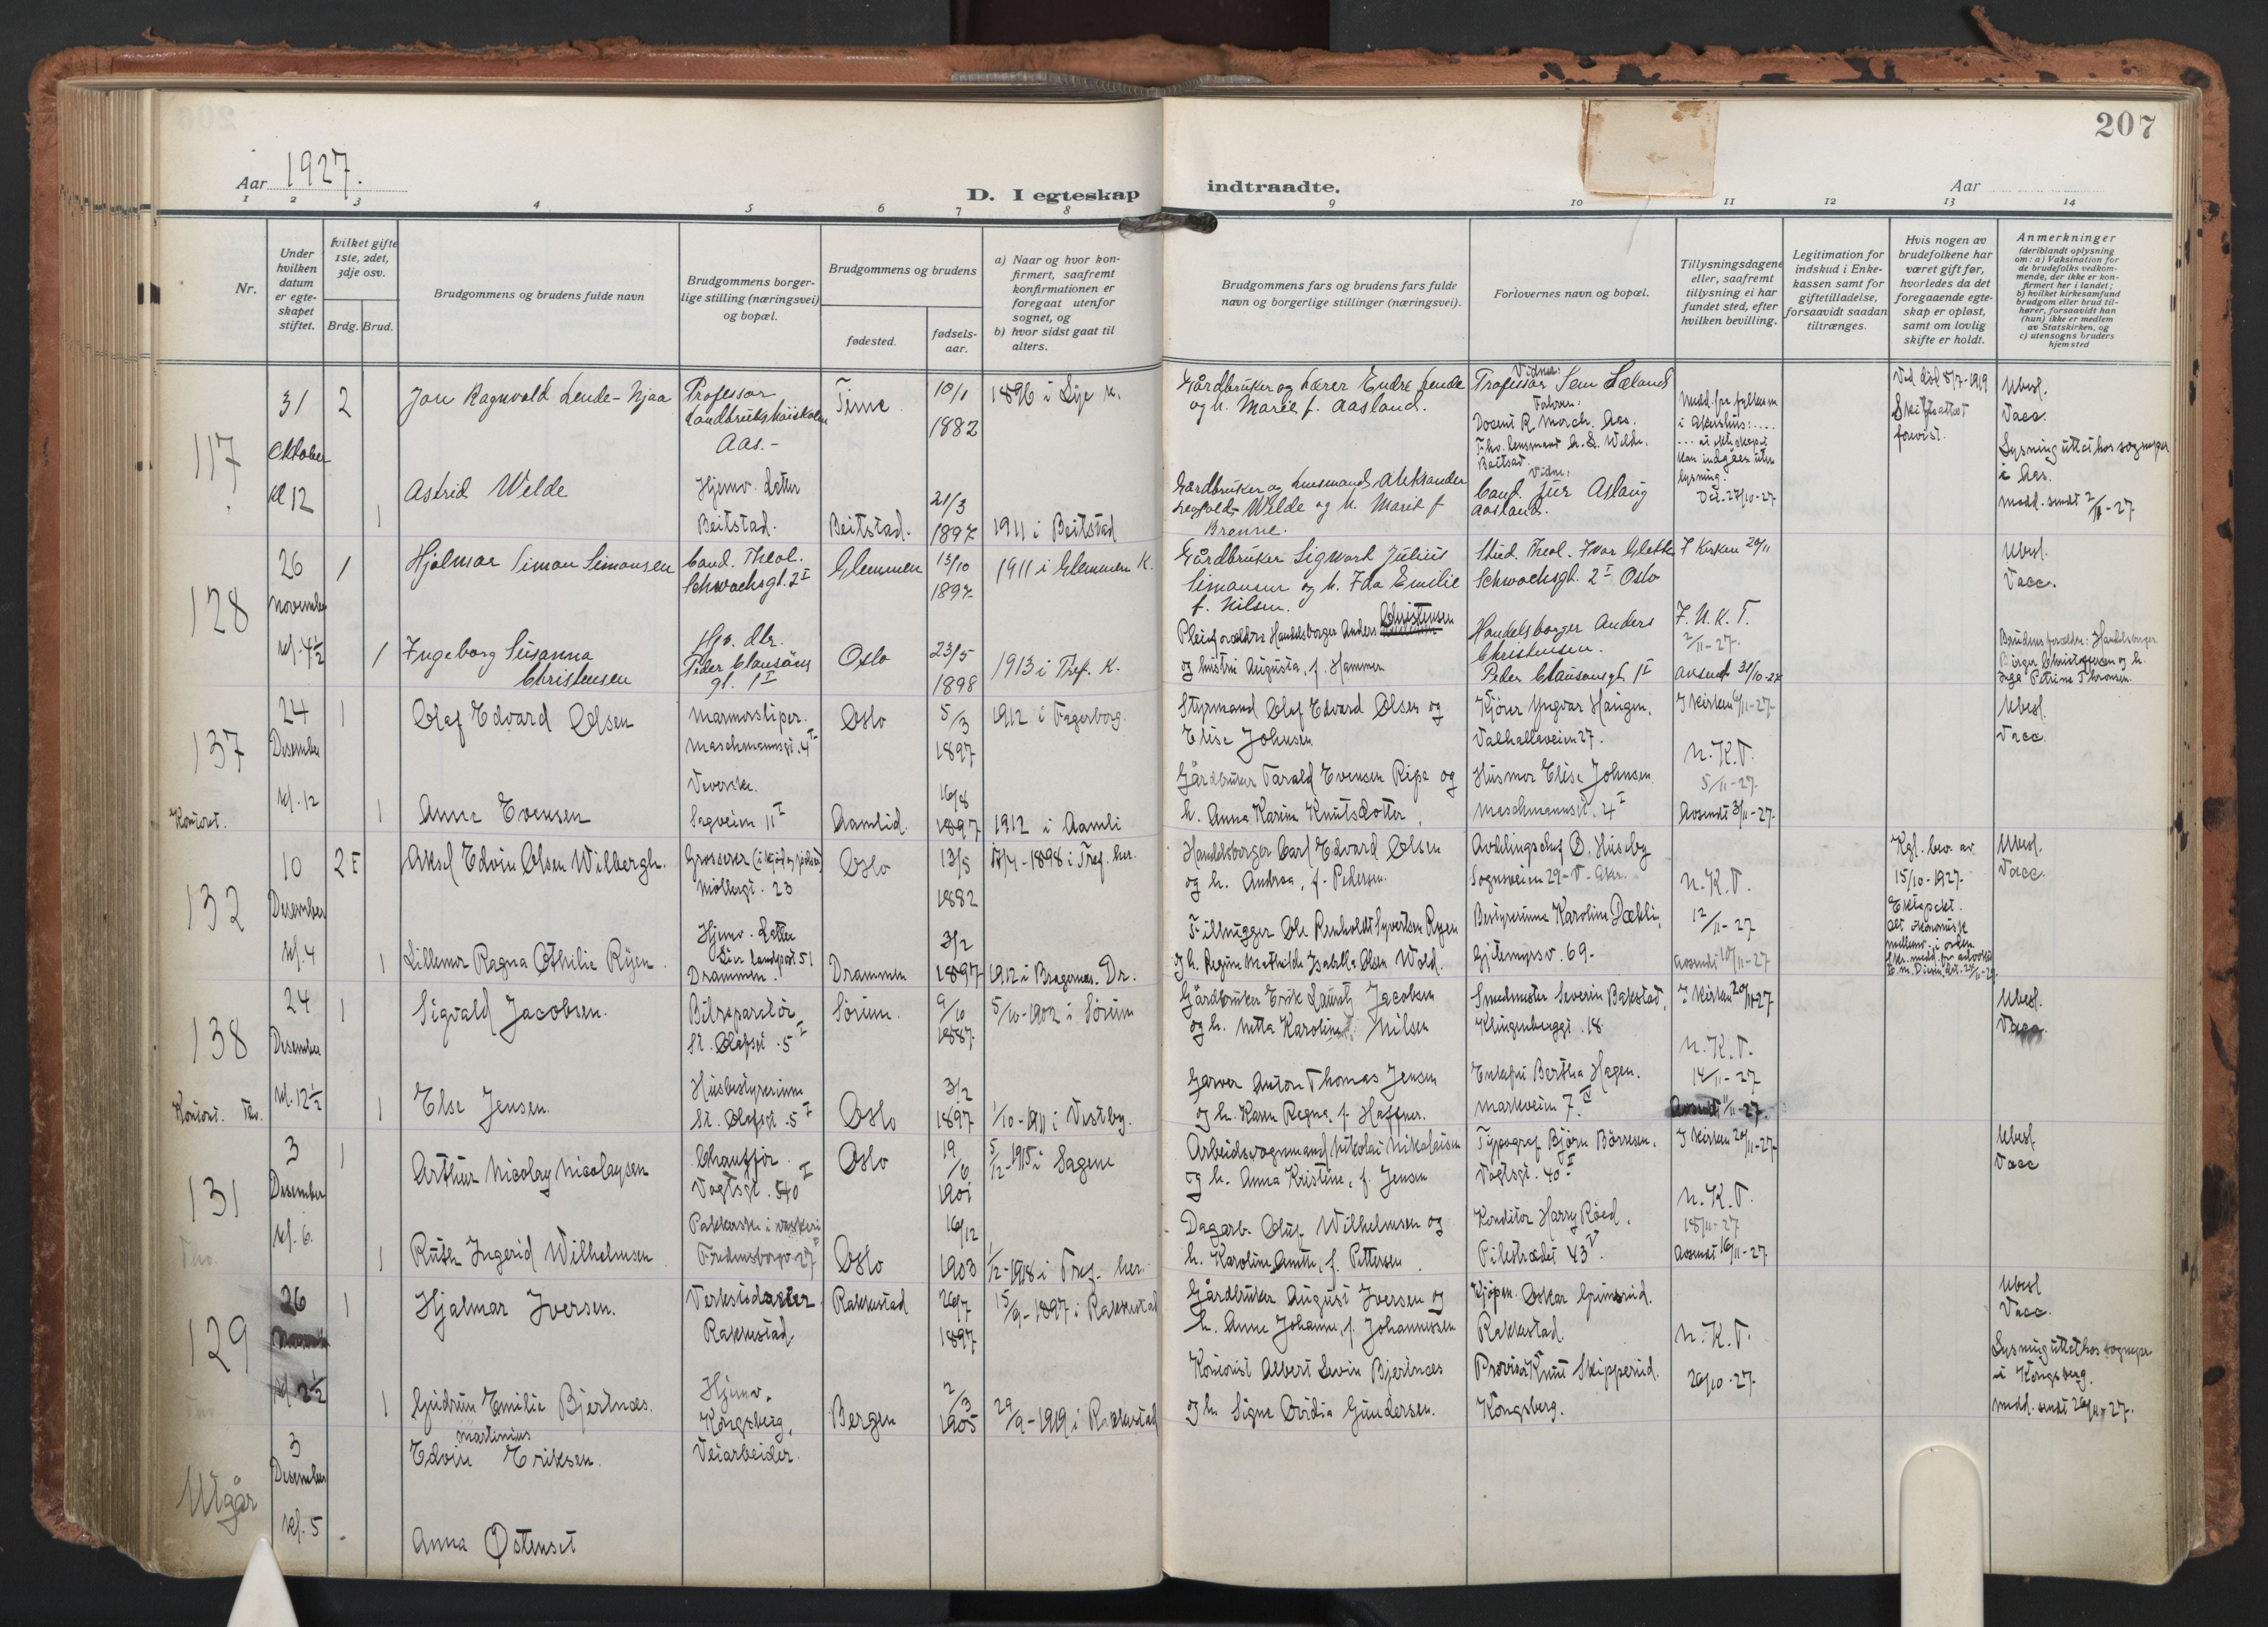 207
Aar 1927.
D. I egteskap indtraadte.
Aar
1 2 3 4 5 6 7 8 9 10 11 12 13 14
Nr.
Under hvilken datum er egte- skapet stiftet.
hvilket gifte 1ste, 2det, 3dje osv.
Brdg. Brud.
Brudgommens og brudens fulde navn
Brudgommens borger- lige stilling (næringsvei) og bopæl.
Brudgommens og brudens
fødested.
fødsels- aar.
a) Naar og hvor kon- firmert, saafremt konfirmationen er foregaat utenfor sognet, og
b) hvor sidst gaat til alters.
Brudgommens fars og brudens fars fulde navn og borgerlige stillinger (næringsvei).
Forlovernes navn og bopæl.
Tillysningsdagene eller, saafremt tillysning ei har fundet sted, efter hvilken bevilling.
Legitimation for indskud i Enke- kassen samt for giftetilladelse, forsaavidt saadan tiltrænges.
Hvis nogen av brudefolkene har været gift før, hvorledes da det foregaaende egte- skap er opløst, samt om lovlig skifte er holdt.
Anmerkninger
(deriblandt oplysning om: a) Vaksination for de brudefolks vedkom- mende, der ikke er kon- firmert her i landet; b) hvilket kirkesamfund brudgom eller brud til- hører, forsaavidt han (hun) ikke er medlem av Statskirken, og c) utensogns bruders hjemsted
117
31 Oktober kl 12
2
Jon Ragnvald Lende-Njaa
Professor Landbrukshøiskolen Aas.-
Time
10/1 1882
1896 i Lye k.
Gårdbruker og Lærer Endre Lende og h. Marie f. Aasland.
Vidne: Professor Sem Sæland
Docent R. Morch. Aas.
Fhv. lensmand
Beitstad.
i Akershus:....
kan indgåes uten lysning.
27/10-27
Ved død 5/7-1919
Skifteattest forevist.
Ubesl.
Vacc.
Lysning uttat hos sognepr i Aas.
medd. sendt 2/11-27
1
Astrid Welde
Hjemv. datter Beitstad.
Beitstad.
21/3 1897
1911 i Beitstad
Gårdbruker og Lensmand Aleksander Welde og h. Marit f Brenne.
Vidne: Cand. jur Aslaug Aasland.
128
26 November kl. 4½
1
Hjalmar Simon Simonsen
Cand. Theol. Schwachsgt. 2 I
Glemmen
13/10 1897
1911 i Glemmen K.
Gårdbruker Sigward Julius Simonsen og h. Ida Emilie f. Nilsen.
Stud. Theol. Ivar Glette Schwachsgt. 2 I Oslo
I Kirken 20/11
Ubesl.
Vacc.
1
Ingeborg Susanna Christensen
Hjv. dtr. Peder Clausøns gt. 1 I
Oslo
23/5 1898
1913 i Tref. K.
Pleieforældre Handelsborger Anders Christensen og hustru Augusta, f. Hammer
Handelsborger Anders Christensen. Peder Clausønsgt. 1 I
F. N. K. T. 2/11-27.
avsendt 31/10-27
Brudens forældre: Handelsborger Birger Christoffersen og h. Inga Petrine Thoresen.
137
Kontoret.
24 Desember kl. 12
1
Olaf Edvard Olsen
Marmorsliper. Maschmannsgt. 4 I
Oslo
5/3 1897
1912 i Fagerborg.
Styrmand Olaf Edvard Olsen og Elise Johnsen
Kjører Yngvar Haugen. Valhallaveien 27.
I kirken 6/11-27
Ubesl.
Vacc.
1
Anna Evensen
Veverske. Sagveien 11 I
Aamlid.
16/8 1897
1912 i Aamli
Gårdbruker Tarald Evensen Ripe og h. Anna Karine Knutsdotter,
Husmor Elise Johnsen. Maschmannsgt. 4 I
N. K. T. 5/11-27.
Avsendt 3/11-27
132
10 Desember kl. 4
2 F
Aksel Edvin Olsen Wilbergh.
Grosserer Møllergt. 23
Oslo
13/5 1882
17/4-1898 i Tref. her.
Handelsborger Carl Edvard Olsen og h. Andrea, f. Pedersen.
Avdelingschef B. Huseby Sognsveien 29- V. Akr.
Kgl. bev. av 15/10-1927.
Ektepakt.
Ubesl.
Vacc.
1
Lillemor Ragna Othilie Ryen.
Hjemv. datter Drammen.
Drammen
3/2 1897
1912 i Bragernes. Dr.
Filhugger Ole Renholdt Syvertsen Ryen og h. Regine Mathilde Isabella Olsen Wold.
Bestyrerinne Karoline Dæhli, Gjetemyrsv. 69-
N. K. T. 12/11-27
avsendt 10/11-27
138
Kontoret.
24 Desember kl. 12½
1
Sigvald Jacobsen.
Bilreparatør St. Olafsgt. 5 I
Sørum.
9/10 1887
5/10-1902 i Sørum
Gårdbruker Erik Lauritz Jacobsen og h. Netta Karoline Nilsen
Smedmester Severin Bakstad, Klingenberggt. 18
I kirken 20/11-27
Ubesl.
Vacc
1
Else Jensen.
Husbestyrerinne St. Olafsgt. 5 I
Oslo
3/2 1897
1/10-1911 i Vestby.
Garver Anton Thomas Jensen og h. Karen Ragna, f. Haffner.
Enkefru Bertha Hagen. Markveien 7. IV
N. K. T. 14/11-27
Avsendt 11/11-27.
131
3 Desember kl. 6.
1
Arthur Nicolay Nicolaysen
Chauffør. Vogtsgt. 40 I
Oslo
19/6 1901
5/12-1915 i Sagene
Arbeidsvognmand Nikolai Nikolaisen og h. Anna Kristine, f. Jensen
Typograf Bjørn Børresen. Vogtsgt. 40 I
I kirken 20/11-27
Ubesl
Vacc
1
Ruth Ingerid Wilhelmsen
Pakkerske i vaskeri Fredensborgv. 27
Oslo
16/12 1903
1/12-1918 i Tref. her.
Dagarb. Oluf Wilhelmsen og h. Karoline Amtte, f. Pettersen.
Konditor Harry Røed. Pilestrædet 43 V.
N. K. T. 18/11-27
Avsendt 16/11-27
129
26 kl. 2½
1
Hjalmar Iversen.
Verkstedeier Rakkestad.
Rakkestad
26/7 1897
15/9-1897 i Rakkestad
Gårdbruker August Iversen og h. Anne Johanne, f. Johannessen
Kjøpm. Oskar Grimsrud. Rakkestad.
N. K. T. 26/10-27.
Ubesl
Vacc.
Lysning uttat hos sognepr i Kongsberg.
medd. sendt 26/11-27.
1
Gudrun Emilie Bjertnæs.
Hjemv. Kongsberg.
Bergen
2/3 1905
29/9-1919 i Rakkestad
Kontorist Albert Levin Bjertnæs og h Signe Ovidia Gundersen.
Provisor Knut Skipperud. Kongsberg.
Utgår
3 Desember kl. 5
Edvin Martinius Eriksen.
Veiarbeider.
Anna Østenset